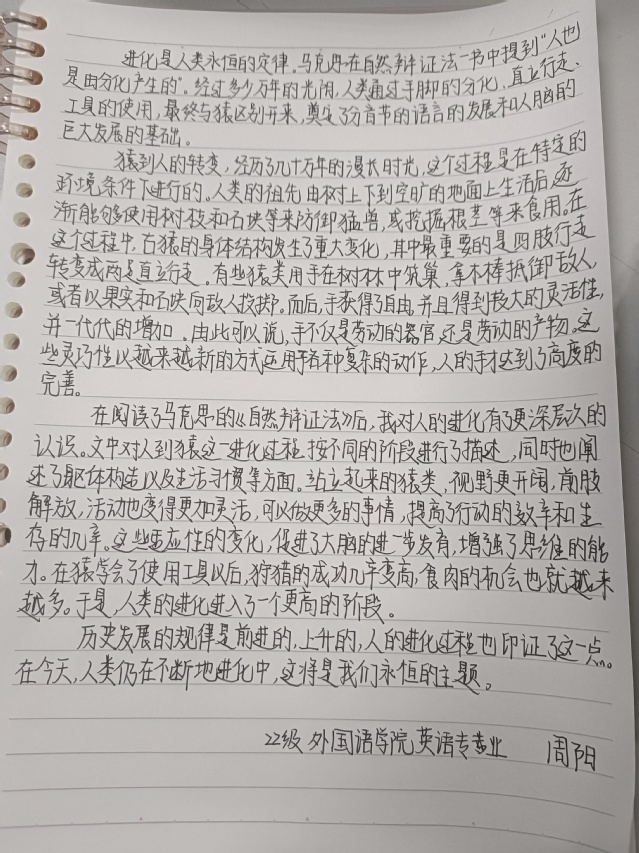 进化是人类永恒的定律。马克思在自然辩证法一书中提到“人也
是由分化产生的”。经过多少万年的光阴,人类通过手脚的分化,直立行走、
工具的使用,最终与猿区别开来,奠定了分音节的语言的发展和人脑的
巨大发展的基础。
猿到人的转变,经历了几十万年的漫长时光,这个过程是在特定的
环境条件下进行的。人类的祖先由树上下到空旷的地面上生活后,逐
渐能够使用树枝和石块等来防御猛兽,或挖掘根茎等来食用。在
这个过程中,古猿的身体结构发生了重大变化,其中最重要的是四肢行走
转变成两足直立行走。有些猿类用手在树林中筑巢,拿木棒抵御敌人,
或者以果实和石块向敌人投掷。而后,手获得了自由,并且得到较大的灵活性,
并一代代的增加。由此可以说,手不仅是劳动的器官,还是劳动的产物。这
些灵巧性以越来越新的方式运用于各种复杂的动作,人的手才达到了高度的
完善。
在阅读了马克思的《自然辩证法》后,我对人的进化有了更深层次的
认识。文中对人到猿这一进化过程按不同的阶段进行了描述,同时也阐
述了躯体构造以及生活习惯等方面。站立起来的猿类,视野更开阔,前肢
解放,活动也变得更加灵活,可以做更多的事情,提高了行动的效率和生
存的几率。这些适应性的变化,促进了大脑的进一步发育,增强了思维的能
力。在猿学会了使用工具以后,狩猎的成功几率变高,食肉的机会也就越来
越多。于是,人类的进化进入了一个更高的阶段。
历史发展的规律是前进的,上升的,人的进化过程也印证了这一点。
在今天,人类仍在不断地进化中,这将是我们永恒的主题。
22级 外国语学院 英语专业 周阳